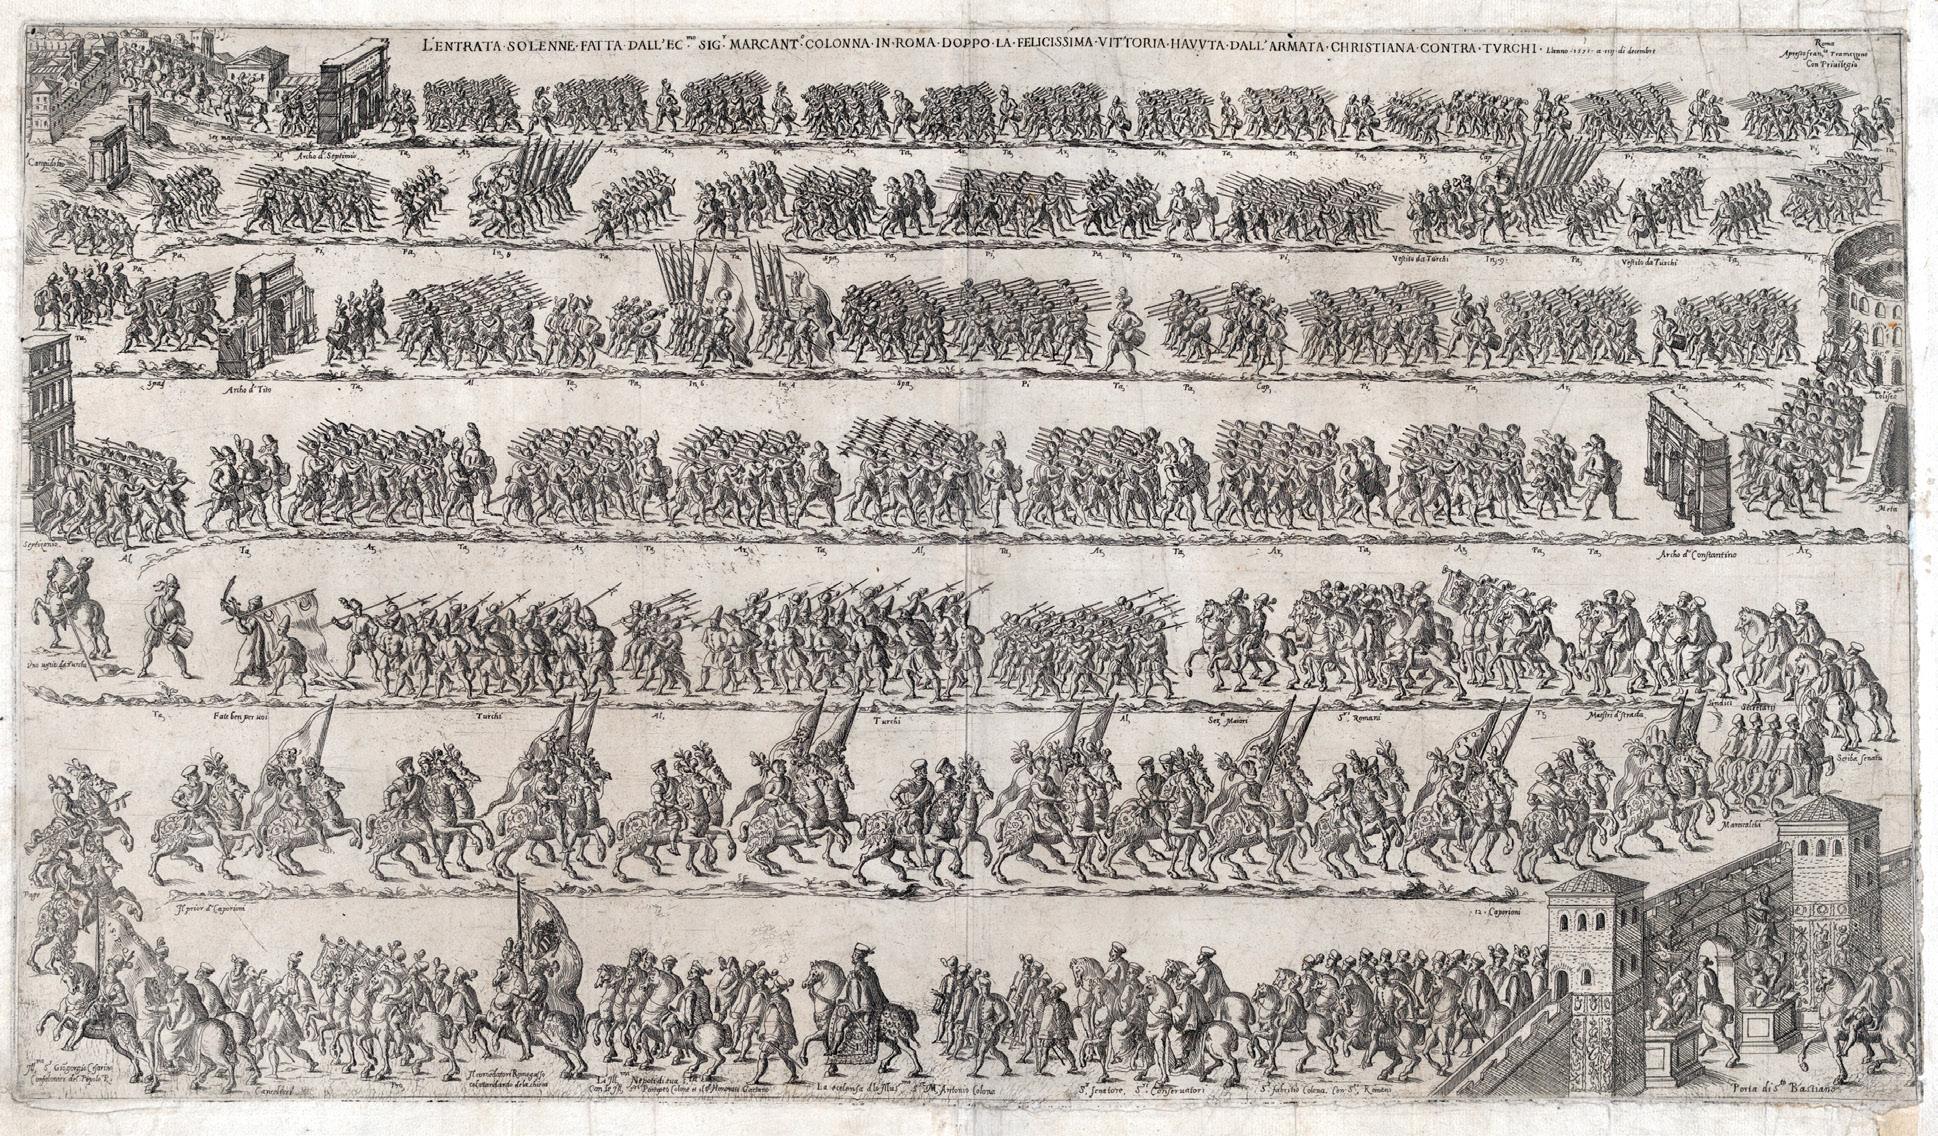 L'ENTRATA·SOLENNE·FATTA·DALL'EC.mo SIG.r MARCANT.o COLONNA·IN·ROMA·DOPPO·LA·FELICISSIMA·VITTORIA·HAVVTA·DALL'ARMATA·CHRISTIANA·CONTRA·TVRCHI· L'anno·1571·a·iiij·di decembre
Roma
Con Priuilegio
Archo d. Septimio Ta, Ar, Ar, Ar, Ta, Ar, Ta, Ar, Ta, Ar, Ta, Ar, Ta, Pi, Cap, Pi, Ta, Pi, Ta,
Campidolio
Pa, Pa, Pi, Pa, In. 8 Pa, Ta, Spa, Ta, Pi, Pa, Pa, Ta, Pi, Vestito da Turchi In. 9. Pa, Vestito da Turchi Ta, Pi,
Ta, Spad Archo d. Tito Ta, Al, Ta, Pa, In. 6. In. 4 Spa, Pi Ta, Pa, Cap, Pi, Ta, Ar, Ta, Ar,
Coliseo
Meta
Septizonio
Al, Ta, Ar, Ta, Ar, Ta, Ar, Ta, Al, Ta, Ar, Ta, Ar, Ta, Ar, Pa, Ta, Archo d. Constantino Ar,
Uno vestito da Turcho
Ta, Fate ben per uoi Turchi Al, Turchi Al, Ser. Maiori S.ri Romani T, Maestri d'strada Sindici Secretarij
Scriba senatu
Marescalchi
Pagy
Il prior d. Caporioni 12 · Caporioni
Ill.mo S. Giogorgio Cesarino
Confalonere del Popolo R.
Cancelieri
Il comedatori Romegasso
col stendardo dela chiesa
Nepoti di sua
Con le Ill. Pompeo Colona et il S. Honorati Caetano
La ecelensa dlo Illus.mo S. M. Antonio Colona
S. Senatore, S.ri Conseruatori
S. fabritio Colona, Con S.ri Romani
Porta di S.to Bastiano